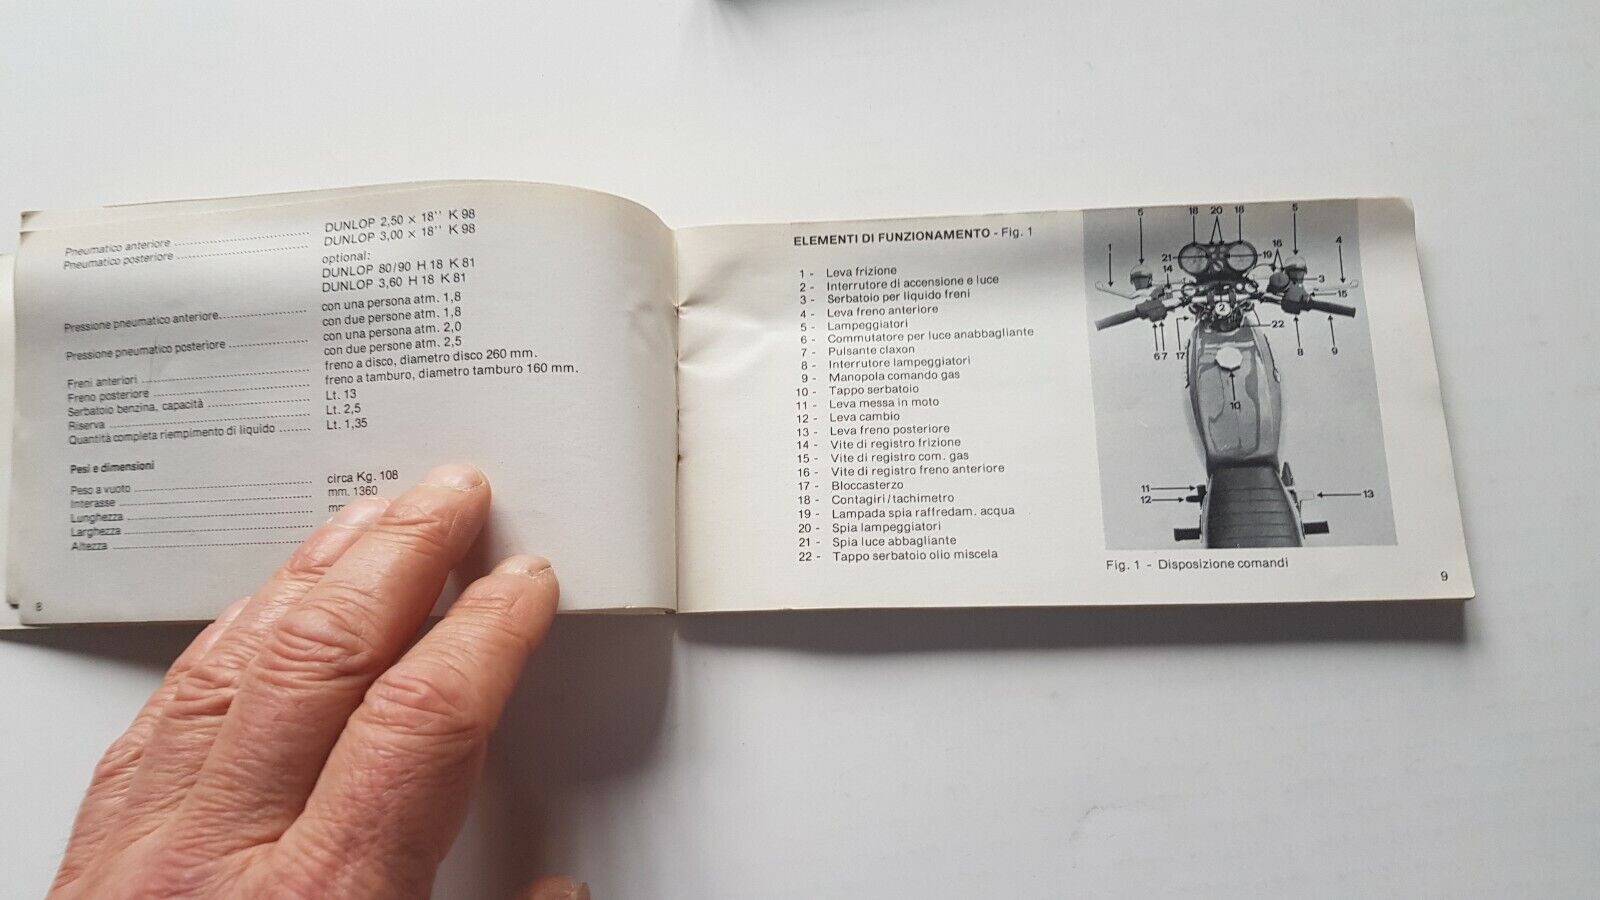 Pneumatico anteriore ........ DUNLOP 2,50 × 18'' K 98
Pneumatico posteriore ........ DUNLOP 3,00 × 18'' K 98
optional:
DUNLOP 80/90 H 18 K 81
DUNLOP 3,60 H 18 K 81
Pressione pneumatico anteriore ........ con una persona atm. 1,8
con due persone atm. 1,8
Pressione pneumatico posteriore ........ con una persona atm. 2,0
con due persone atm. 2,5
Freni anteriori ........ freno a disco, diametro disco 260 mm.
Freno posteriore ........ freno a tamburo, diametro tamburo 160 mm.
Serbatoio benzina, capacità ........ Lt. 13
Riserva ........ Lt. 2,5
Quantità completa riempimento di liquido ........ Lt. 1,35
Pesi e dimensioni
Peso a vuoto ........ circa Kg. 108
Interasse ........ mm. 1360
Lunghezza ........
Larghezza ........
Altezza ........
8
ELEMENTI DI FUNZIONAMENTO - Fig. 1
1 - Leva frizione
2 - Interruttore di accensione e luce
3 - Serbatoio per liquido freni
4 - Leva freno anteriore
5 - Lampeggiatori
6 - Commutatore per luce anabbagliante
7 - Pulsante claxon
8 - Interrutore lampeggiatori
9 - Manopola comando gas
10 - Tappo serbatoio
11 - Leva messa in moto
12 - Leva cambio
13 - Leva freno posteriore
14 - Vite di registro frizione
15 - Vite di registro com. gas
16 - Vite di registro freno anteriore
17 - Bloccasterzo
18 - Contagiri/tachimetro
19 - Lampada spia raffredam. acqua
20 - Spia lampeggiatori
21 - Spia luce abbagliante
22 - Tappo serbatoio olio miscela
5 18 20 18 5
1 21 19 16 4
14 3
15
2
22
6 7 17 8 9
10
11
12 13
Fig. 1 - Disposizione comandi
9